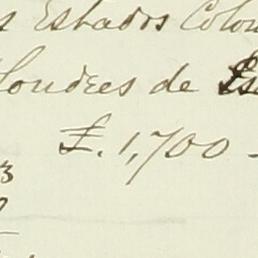 s Estados Colom
Londres de Es
£. 1,700 -
3